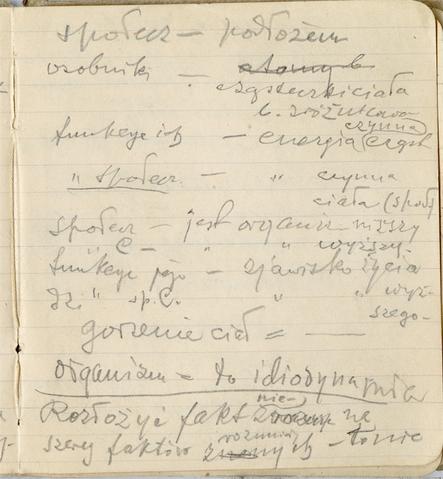 społecz — podłożem
osobniki — atomy b
cząsteczki ciała
b. różnkowe
funkcye ich — energia czynna cząst
„społecz — „ czynna
ciała (społ
społecz — jest organiz niższy
„ C — „ „ wyższy
funkcye jego — zjawisko życia
dz. „ sp. C. „ „ wyż-
szego-
gorzenie ciał = —
organizm = to idiodynamia
Rozłożyć fakt nie- na
szereg faktów rozumia nych — to nie